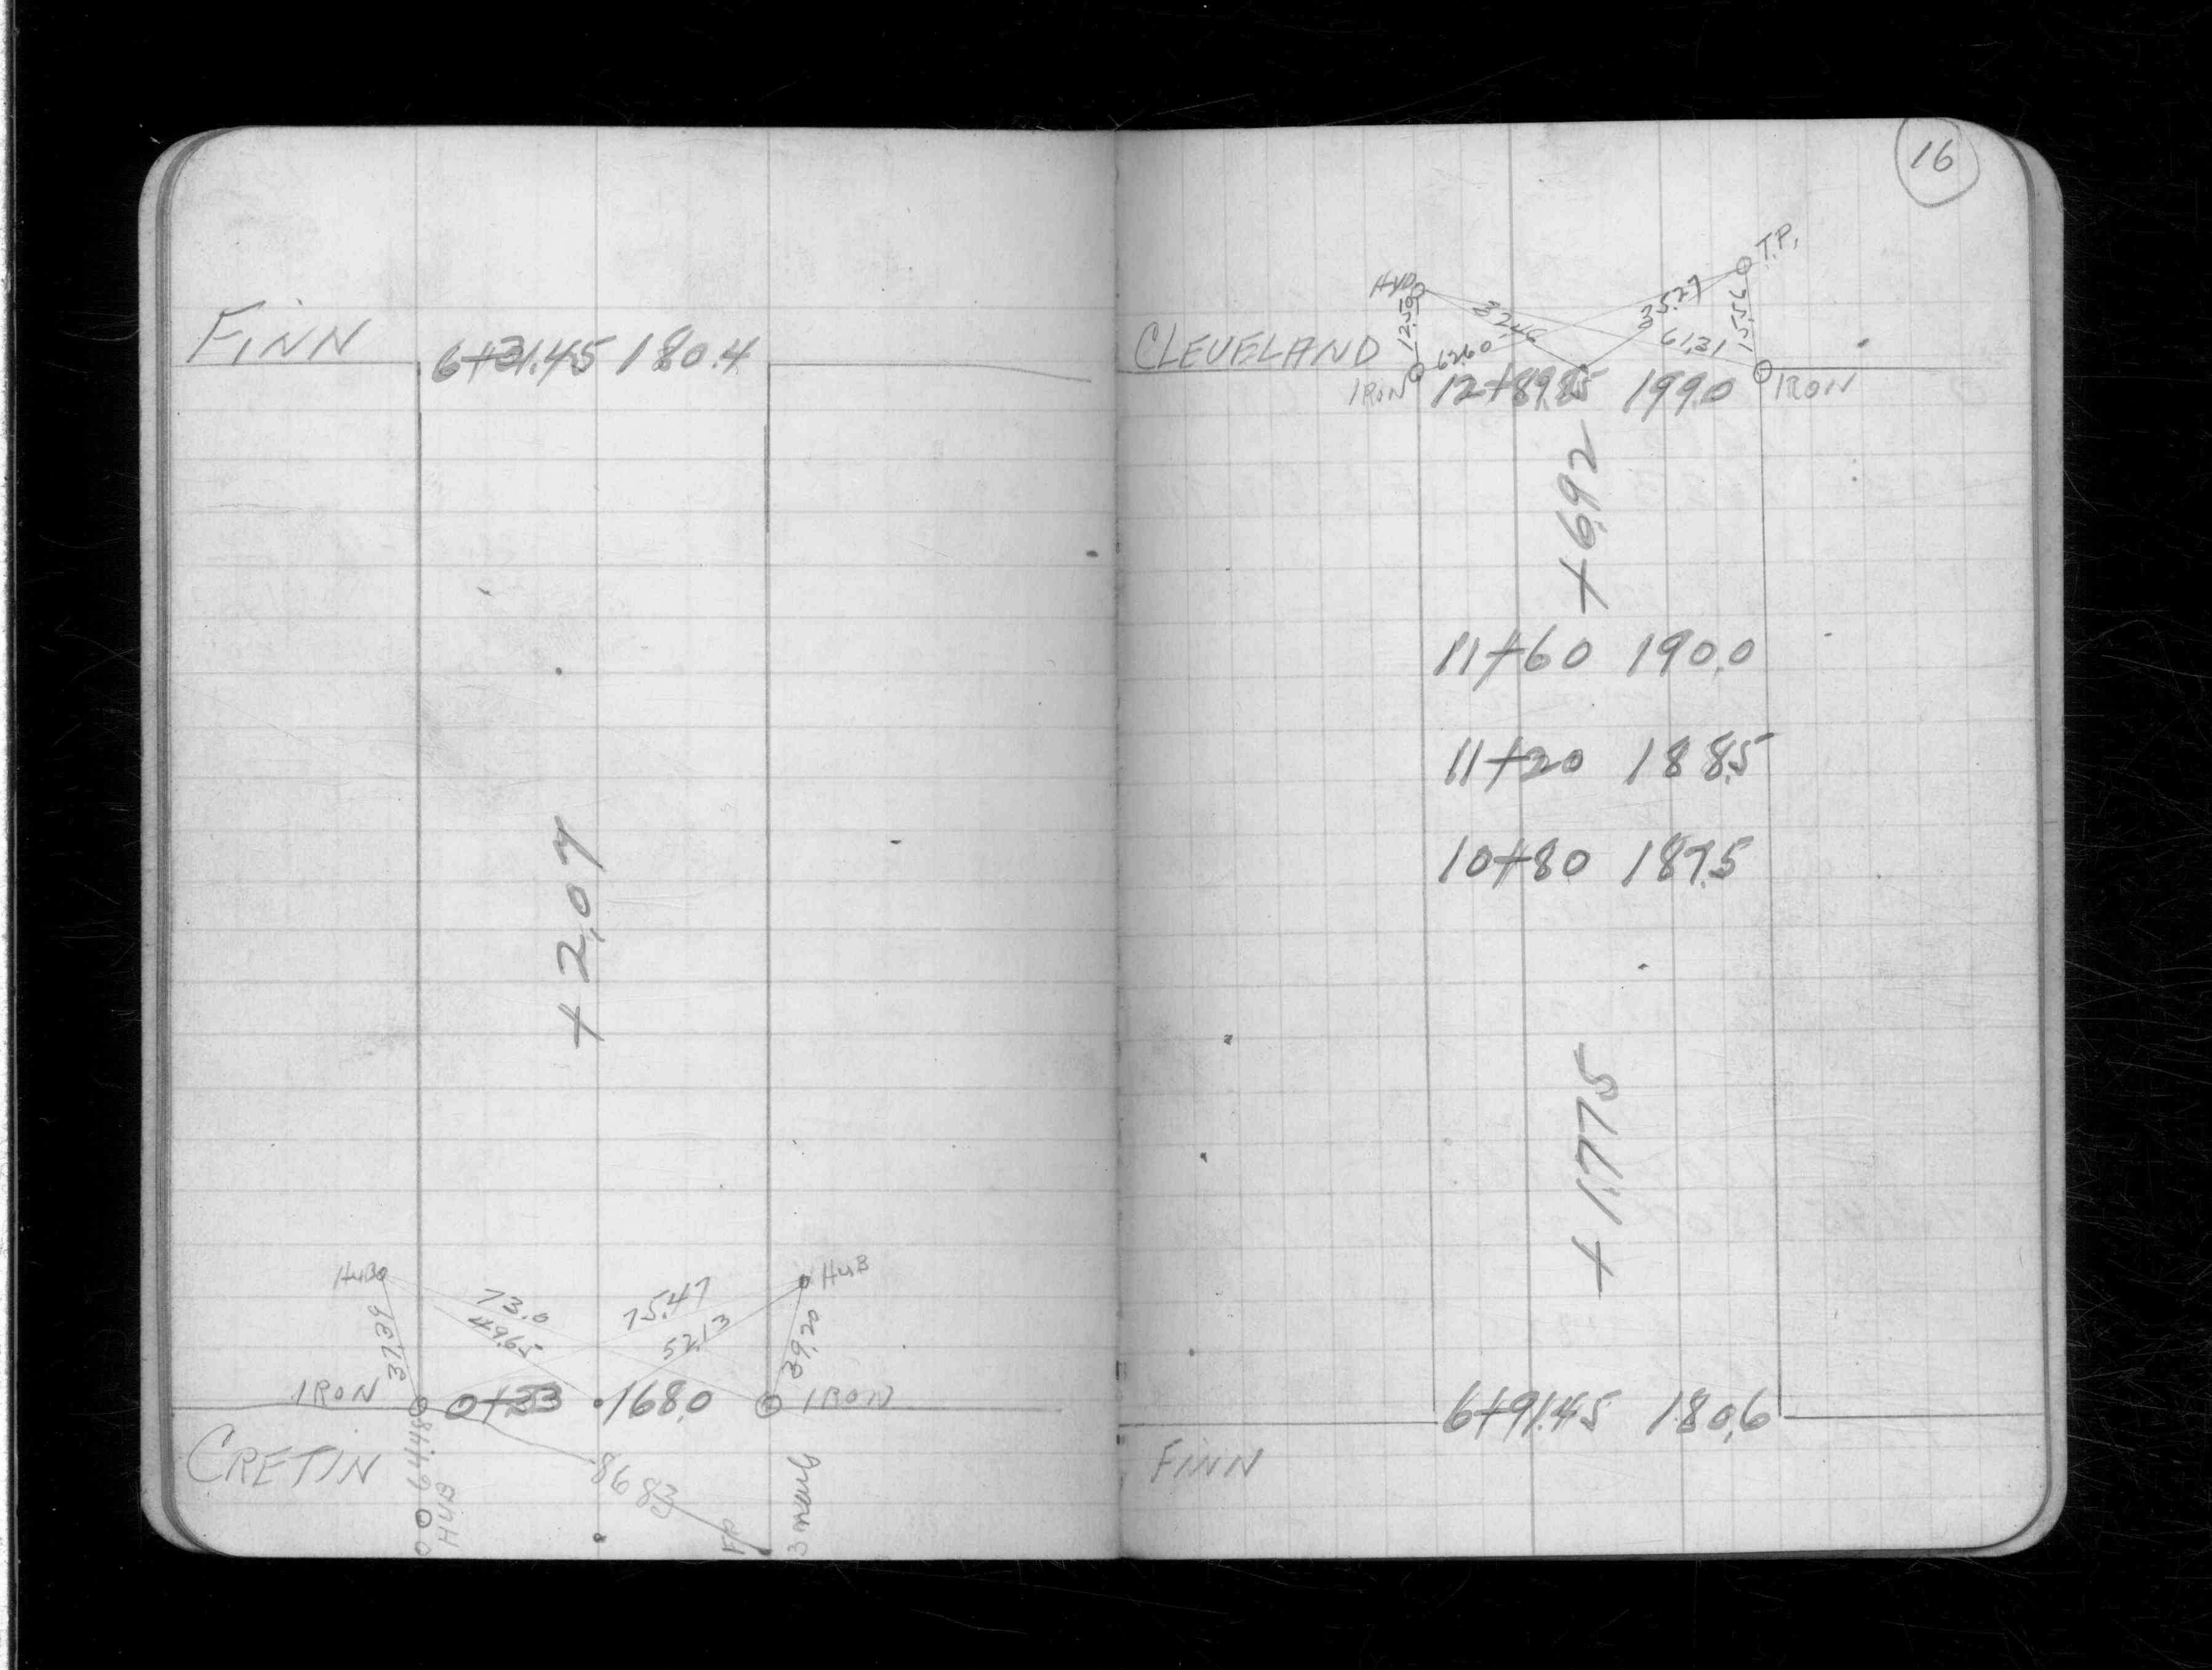 FINN 6+31.45 180.4
+2.07
HUB HUB
73.0 75.47
37.39 49.65 52.13 39.20
IRON 0+33 168.0 IRON
CRETIN
64.48 HUB
86.83
FP
3 marks
16
T.P.
HYD
12.50 32.46 35.27 15.56
CLEVELAND 62.60 61.31
IRON 12+89.85 199.0 IRON
+6.92
11+60 190.0
11+20 188.5
10+80 187.5
+1.775
6+91.45 180.6
FINN